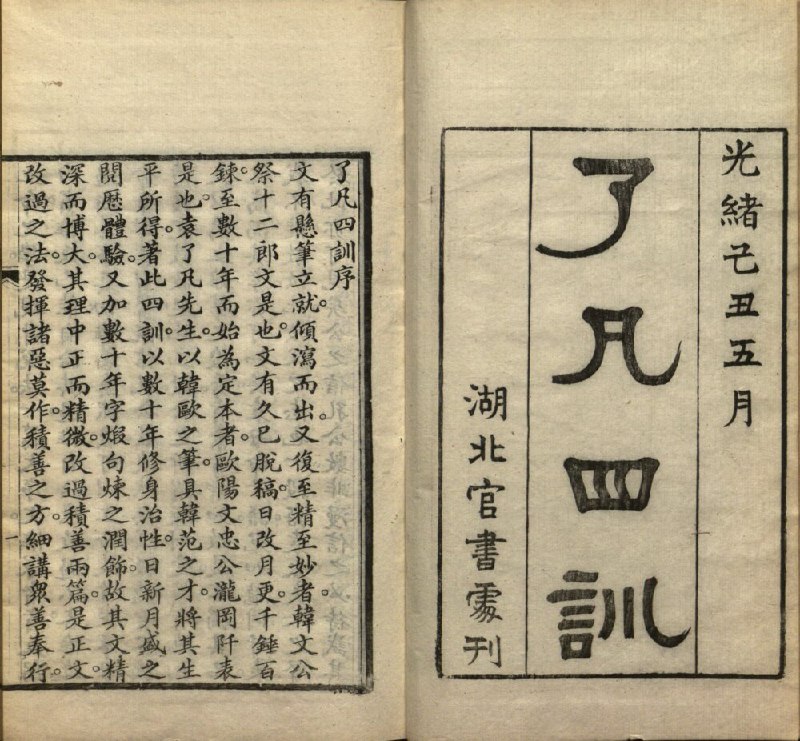 光緒己丑五月
了凡四訓
湖北官書處刊
了凡四訓序
文有懸筆立就。傾瀉而出。又復至精至妙者韓文公
祭十二郎文是也。文有久已脫稿。日改月更。千錘百
鍊。至數十年而始為定本者。歐陽文忠公瀧岡阡表
是也。袁了凡先生。以韓歐之筆。具韓范之才。將其生
平所得。著此四訓。以數十年修身治性。日新月盛之
閱歷體驗。又加數十年字煅句煉之潤飾。故其文精
深而博大。其理中正而精微。改過積善兩篇。是正文。
改過之法。發揮諸惡莫作。積善之方。細講眾善奉行。
一